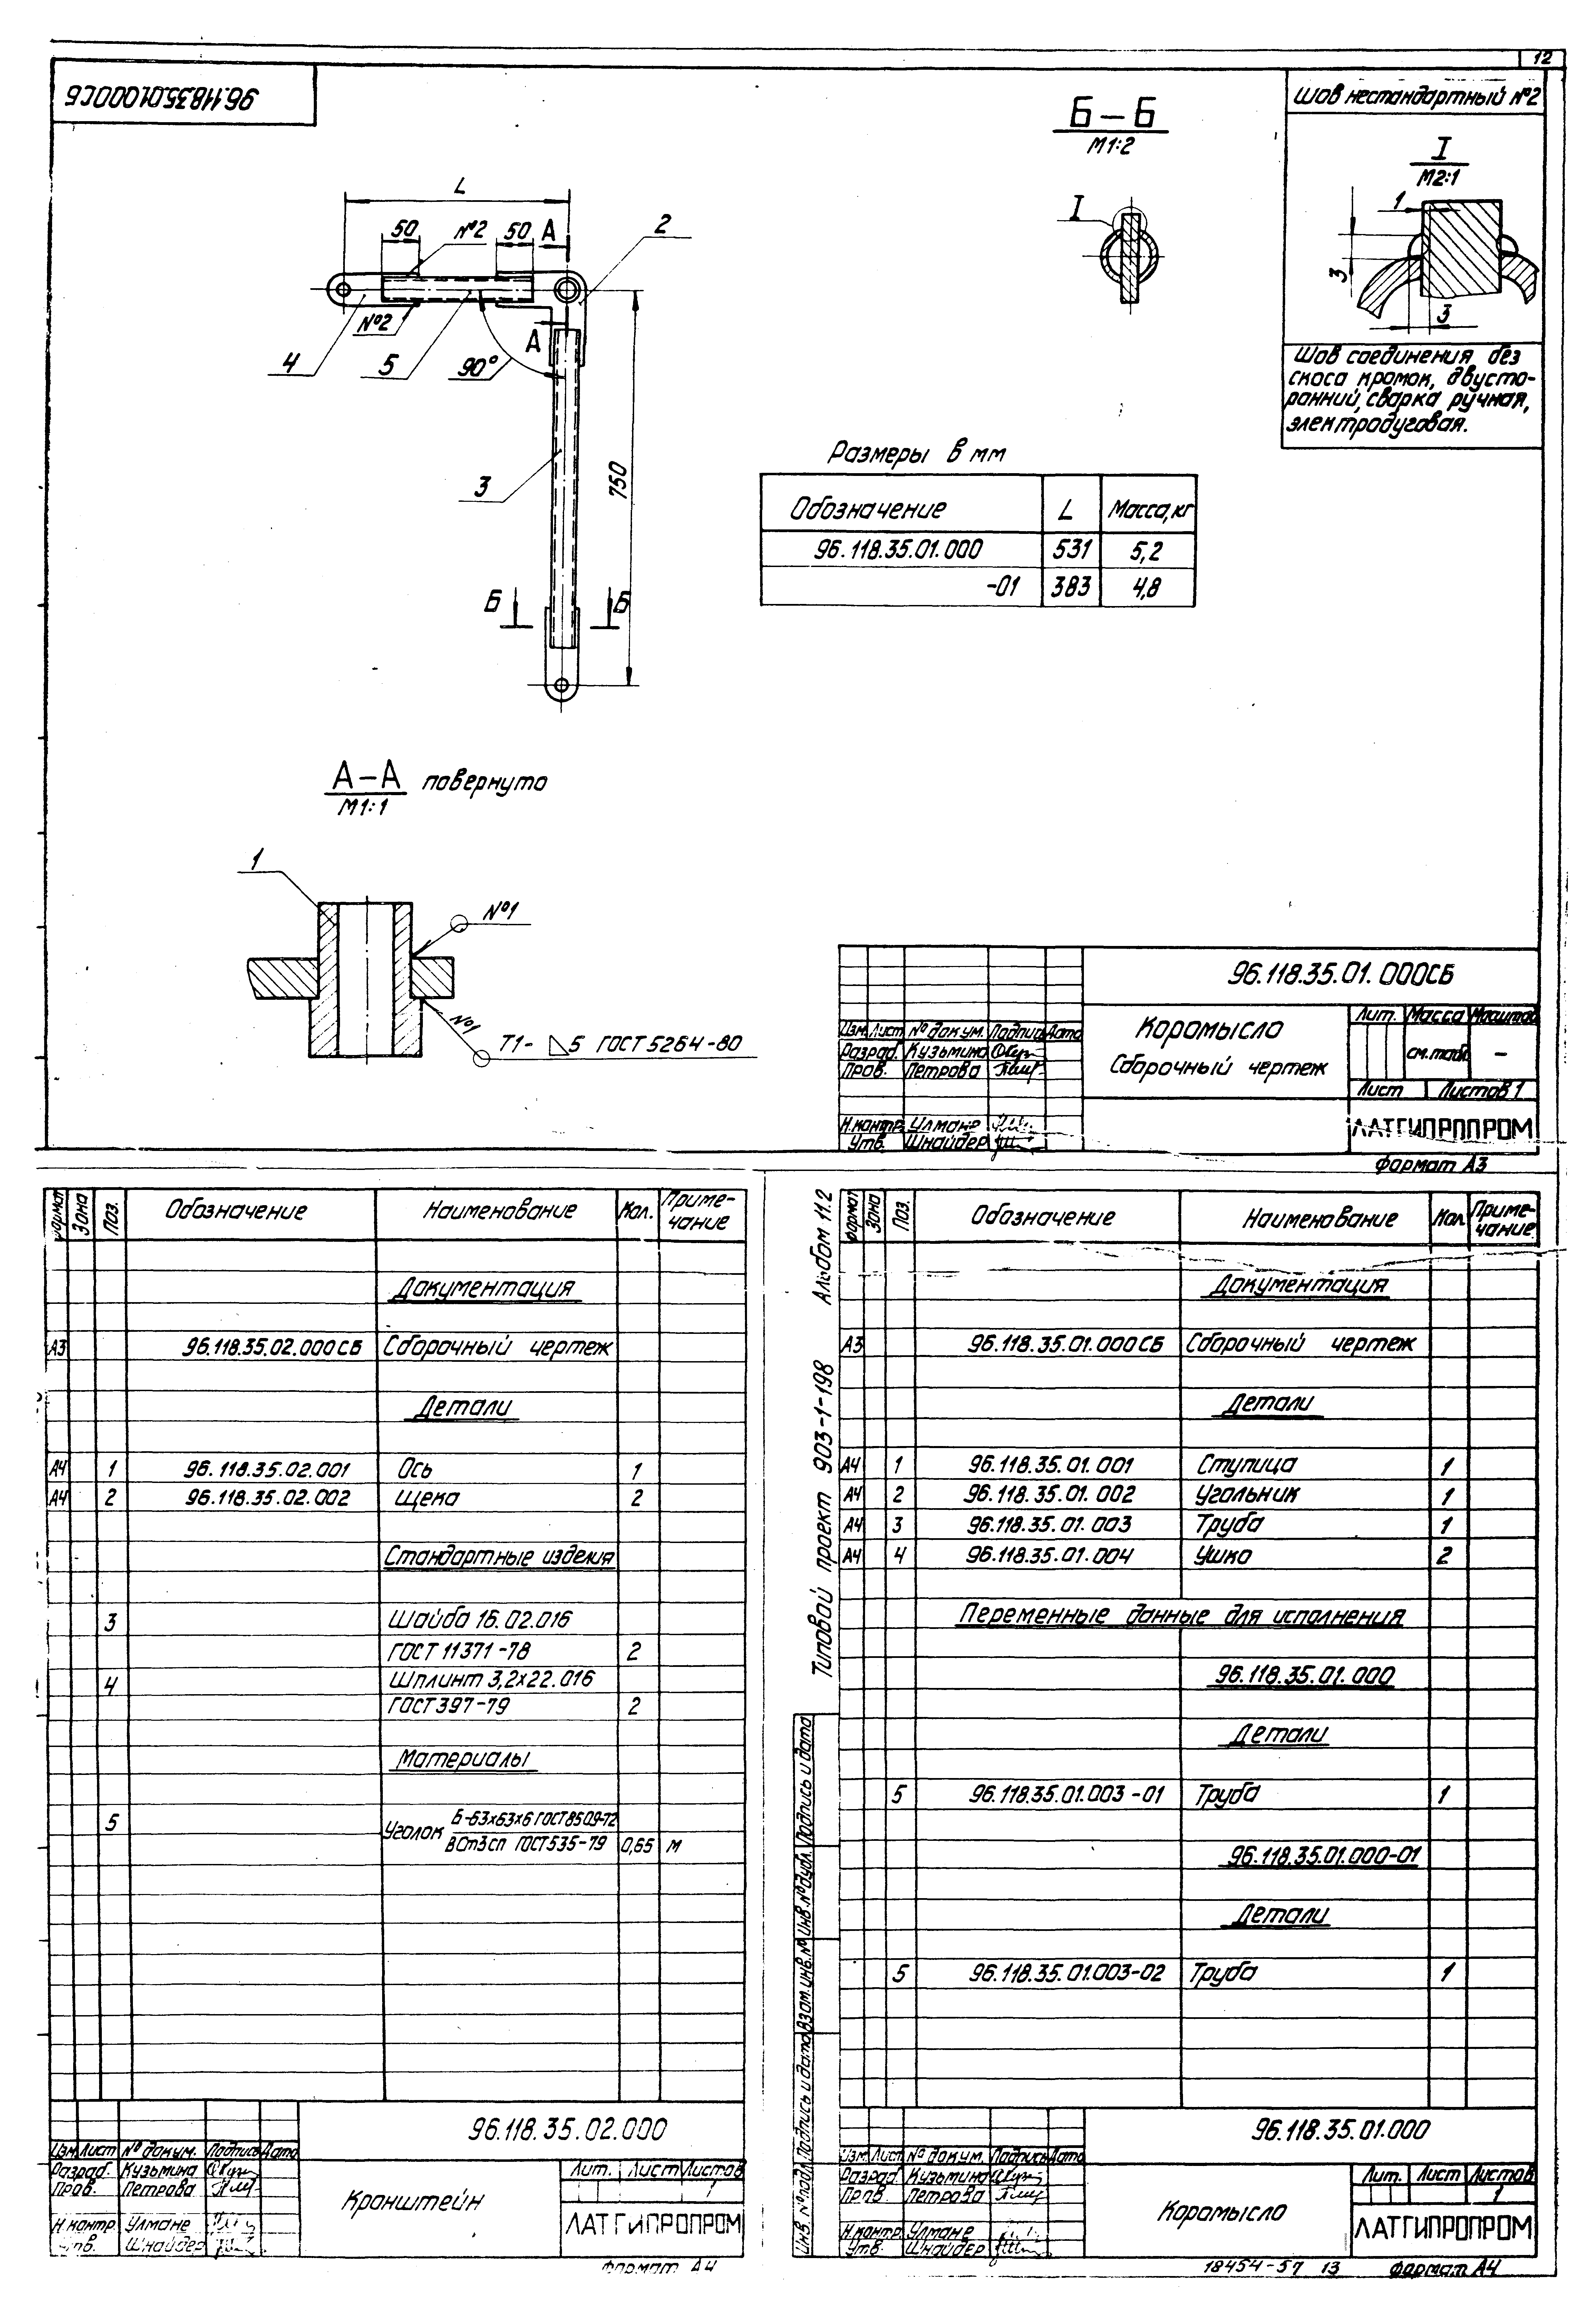 12
96.118.35.01.000СБ
Б–Б
М1:2
I
Шов нестандартный №2
I
М2:1
1
3
3
Шов соединения без
скоса кромок, двусто-
ронний, сварка ручная,
электродуговая.
L
50
№2
50
А
2
№2
А
4
5
90°
3
750
Б
Б
Размеры в мм
Обозначение L Масса, кг
96.118.35.01.000 531 5,2
-01 383 4,8
А–А повернуто
М1:1
1
№1
№1
Т1- ◺5 ГОСТ 5264-80
96.118.35.01.000СБ
Изм. Лист № докум. Подпись Дата
Разраб. Кузьмина
Пров. Петрова
Н.контр. Улмане
Утв. Шнайдер
Коромысло
Сборочный чертеж
Лит. Масса Масштаб
см.табл. –
Лист Листов 1
ЛАТГИПРОПРОМ
Формат А3
Формат Зона Поз. Обозначение Наименование Кол. Приме-
чание
Документация
А3 96.118.35.02.000СБ Сборочный чертеж
Детали
А4 1 96.118.35.02.001 Ось 1
А4 2 96.118.35.02.002 Щека 2
Стандартные изделия
3 Шайба 16.02.016
ГОСТ 11371-78 2
4 Шплинт 3,2х22.016
ГОСТ 397-79 2
Материалы
5 Уголок Б-63х63х6 ГОСТ 8509-72
ВСт3сп ГОСТ 535-79 0,65 м
96.118.35.02.000
Изм. Лист № докум. Подпись Дата
Разраб. Кузьмина
Пров. Петрова
Н.контр. Улмане
Утв. Шнайдер
Кронштейн
Лит. Лист Листов
1
ЛАТГИПРОПРОМ
Формат А4
Типовой проект 903-1-198 Альбом 11.2
Инв. № подл. Подпись и дата Взам. инв. № Инв. № дубл. Подпись и дата
Формат Зона Поз. Обозначение Наименование Кол. Приме-
чание
Документация
А3 96.118.35.01.000СБ Сборочный чертеж
Детали
А4 1 96.118.35.01.001 Ступица 1
А4 2 96.118.35.01.002 Угольник 1
А4 3 96.118.35.01.003 Труба 1
А4 4 96.118.35.01.004 Ушко 2
Переменные данные для исполнения
96.118.35.01.000
Детали
5 96.118.35.01.003-01 Труба 1
96.118.35.01.000-01
Детали
5 96.118.35.01.003-02 Труба 1
96.118.35.01.000
Изм. Лист № докум. Подпись Дата
Разраб. Кузьмина
Пров. Петрова
Н.контр. Улмане
Утв. Шнайдер
Коромысло
Лит. Лист Листов
1
ЛАТГИПРОПРОМ
18454-57 13 Формат А4